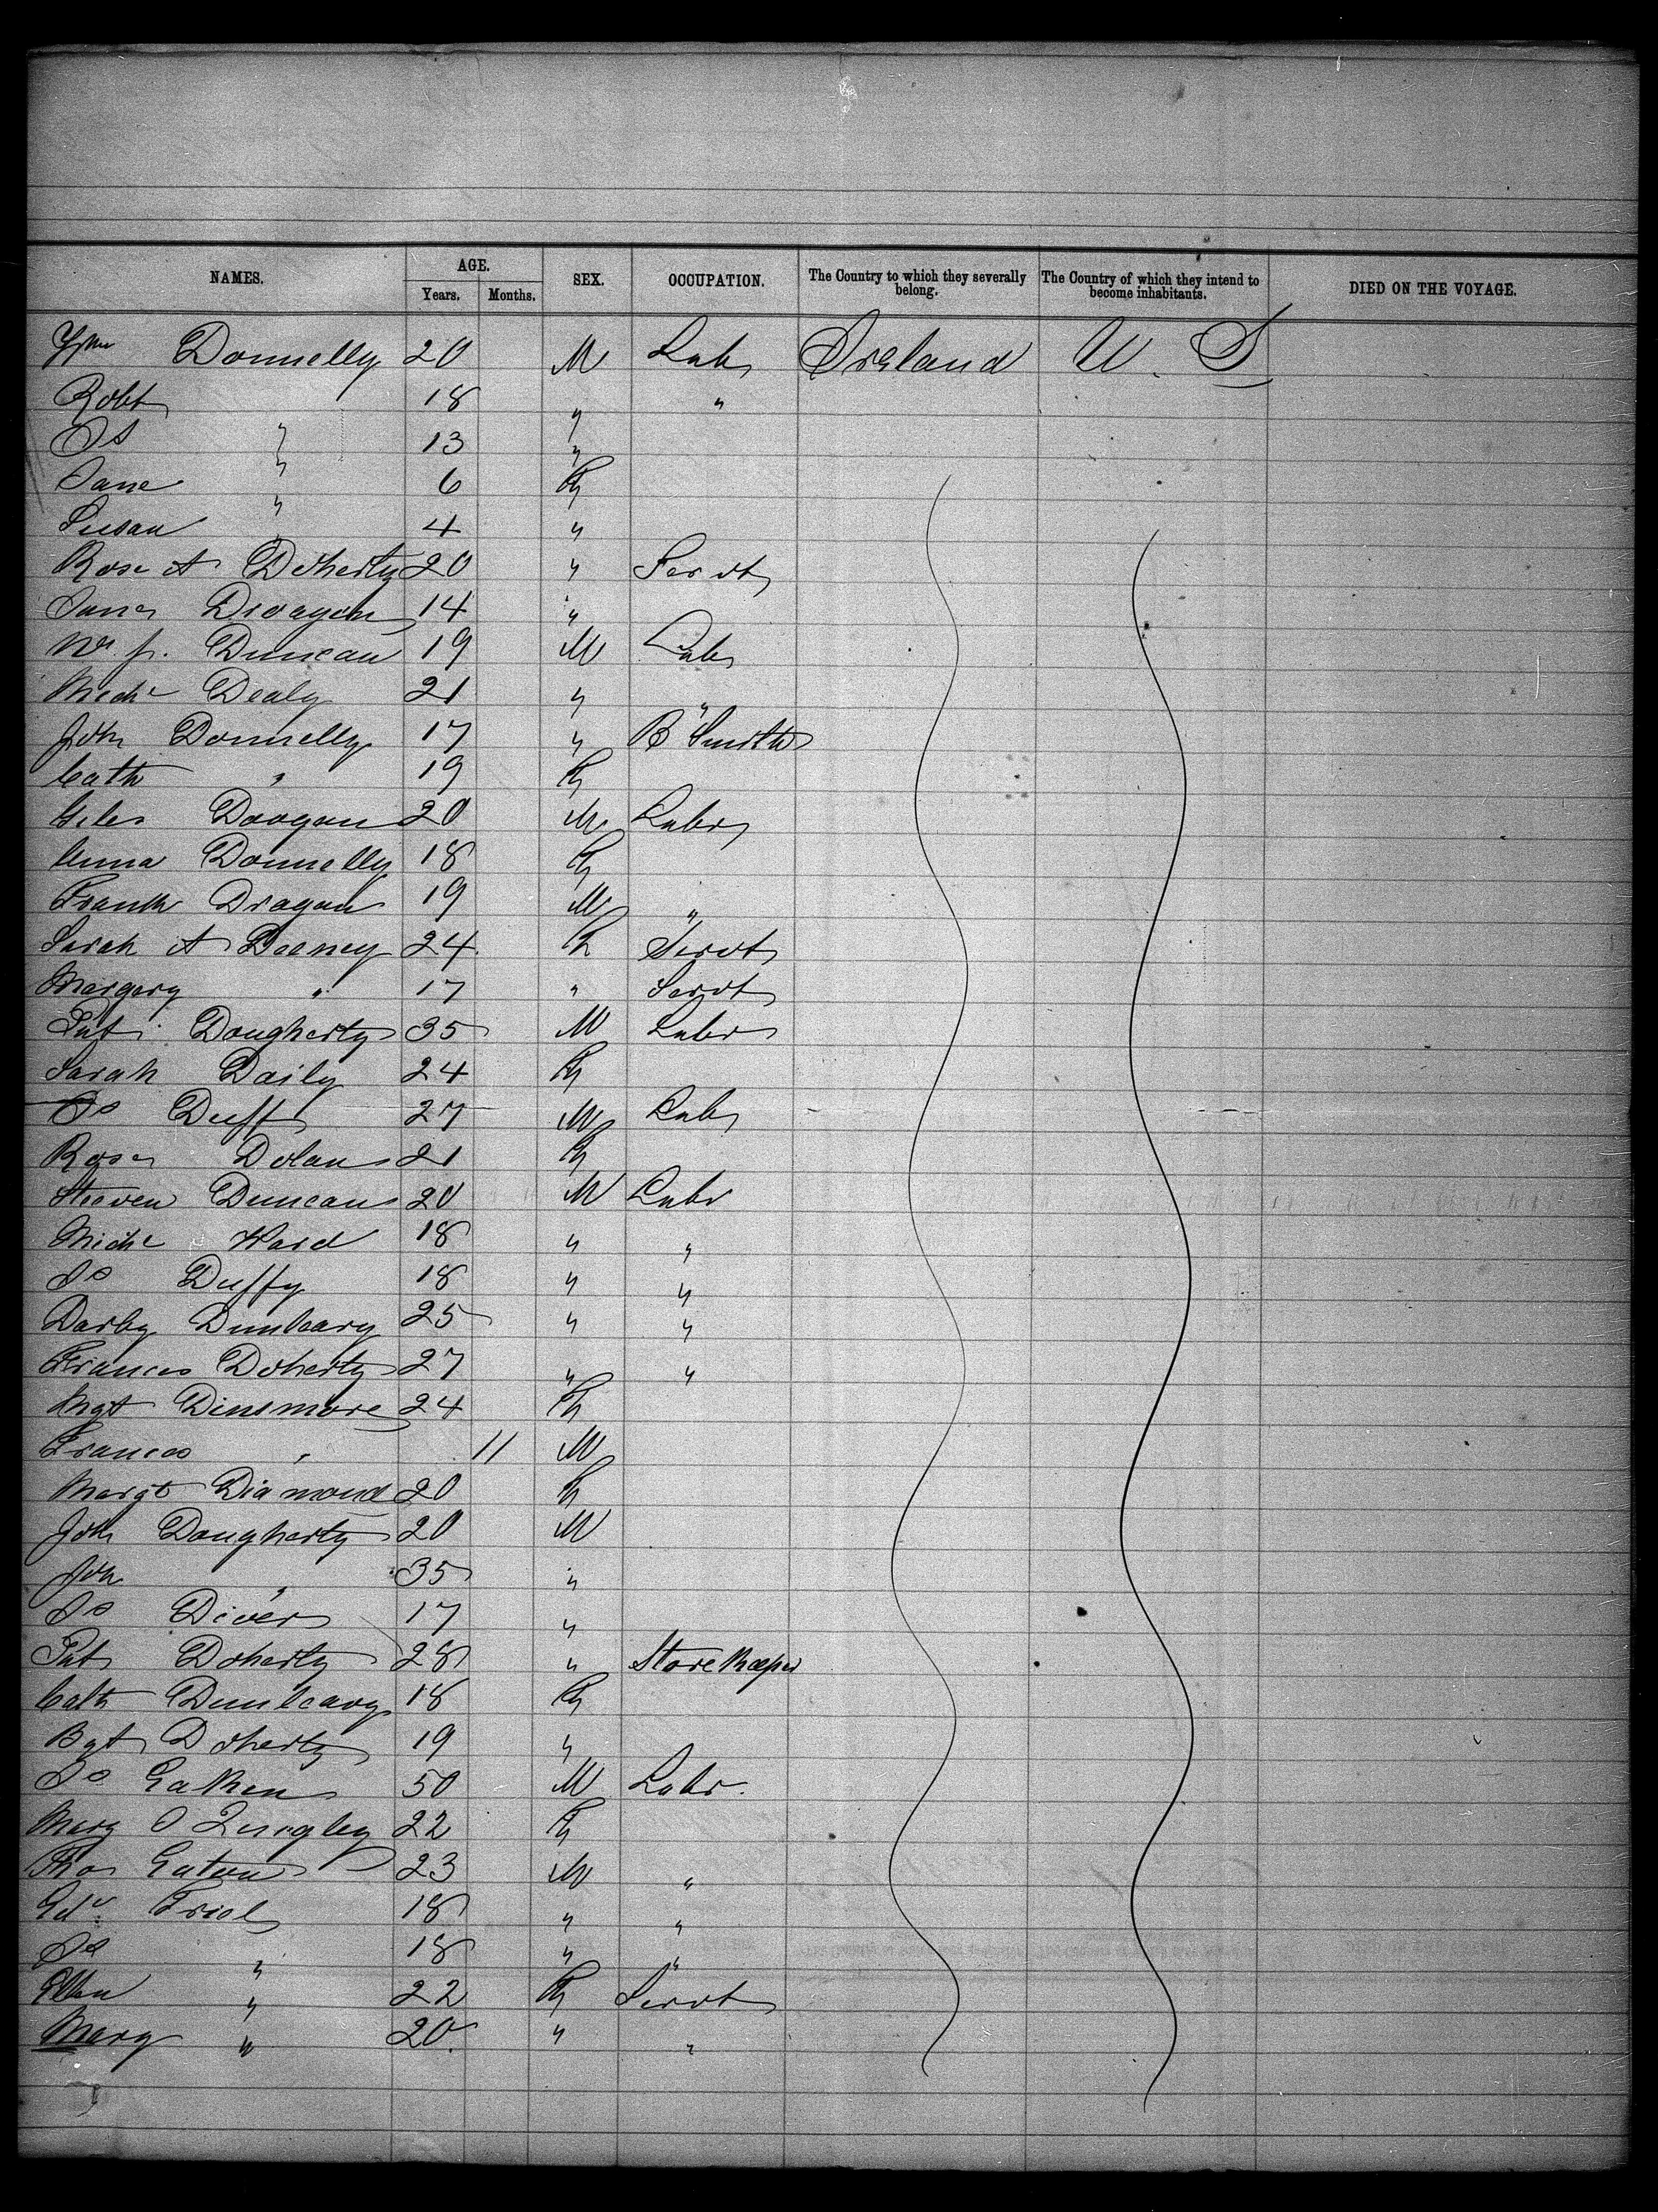 NAMES. AGE. SEX. OCCUPATION. The Country to which they severally belong. The Country of which they intend to become inhabitants. DIED ON THE VOYAGE.
Years. Months.
Wm Donnelly 20 M Labr Ireland U. S
Robt 18 " "
Js " 13 "
Jane " 6 F
Susan " 4 "
Rose A Doherty 20 " Servt
Jane 14 "
Wm J. Duncan 19 M Labr
Michl Dealy 21 " "
John Donnelly 17 " B Smith
Cath " 19 F
Giles Doogan 20 M Labr
Anna Donnelly 18 F
Frank Dragan 19 M "
Sarah A Deeney 24 F Servt
Margery " 17 " Servt
Pat Dougherty 35 M Labr
Sarah Daily 24 F
Js Duff 27 M Labr
Rose Dolan 21 F
Steven Duncan 20 M Labr
Michl Ward 18 " "
Js Duffy 18 " "
Darby Dunleavy 25 " "
Frances Doherty 27 " "
Mgt Dinsmore 24 F
Frances " 11 M
Margt Diamond 20 F
John Dougherty 20 M
John " 35 "
Js Diver 17 "
Pat Doherty 28 " Store Keeper
Cath Dunleavy 18 F
Bgt Doherty 19 "
Js Eakken 50 M Labr.
Mary O Quigley 22 F
Thos Eaton 23 M "
Edw Friel 18 " "
Js " 18 " "
Ellen " 22 F Servt
Mary " 20 " "